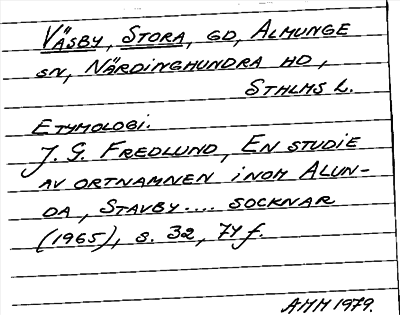 VÄSBY, STORA, GD, ALMUNGE
SN, NÄRDINGHUNDRA HD,
STHLMS L.
ETYMOLOGI.
J. G. FREDLUND, EN STUDIE
AV ORTNAMNEN INOM ALUN-
DA, STAVBY.... SOCKNAR
(1965), s. 32, 74 f.
AMM 1979.